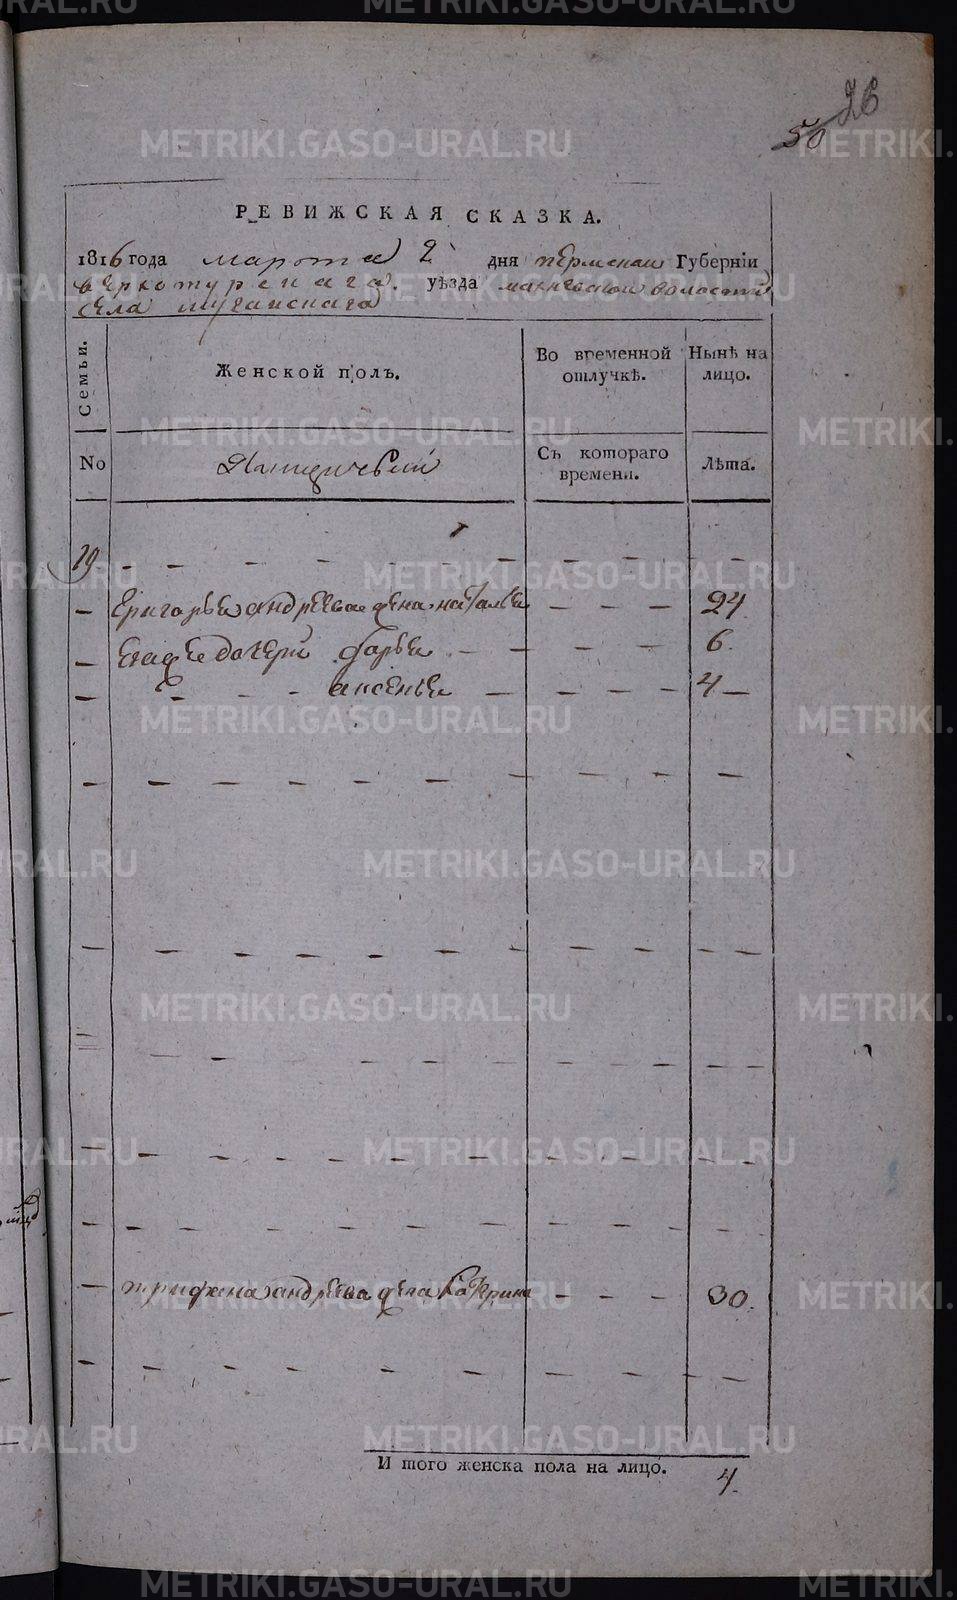 26
50
РЕВИЖСКАЯ СКАЗКА.
1816 года марта 2 дня пермской Губернїи
верхотурскага. уѣзда махневской волости
села мугайскаго
Семьи.
Женской полъ.
Во временной отлучкѣ.
Нынѣ на лицо.
No
Съ котораго времени.
Лѣта.
19
Григорья андреева жена наталья 24
 дочери дарья 6.
аксенья 4
трифена андреева жена катерина 30.
И того женска пола на лицо. 4.
METRIKI.GASO-URAL.RU